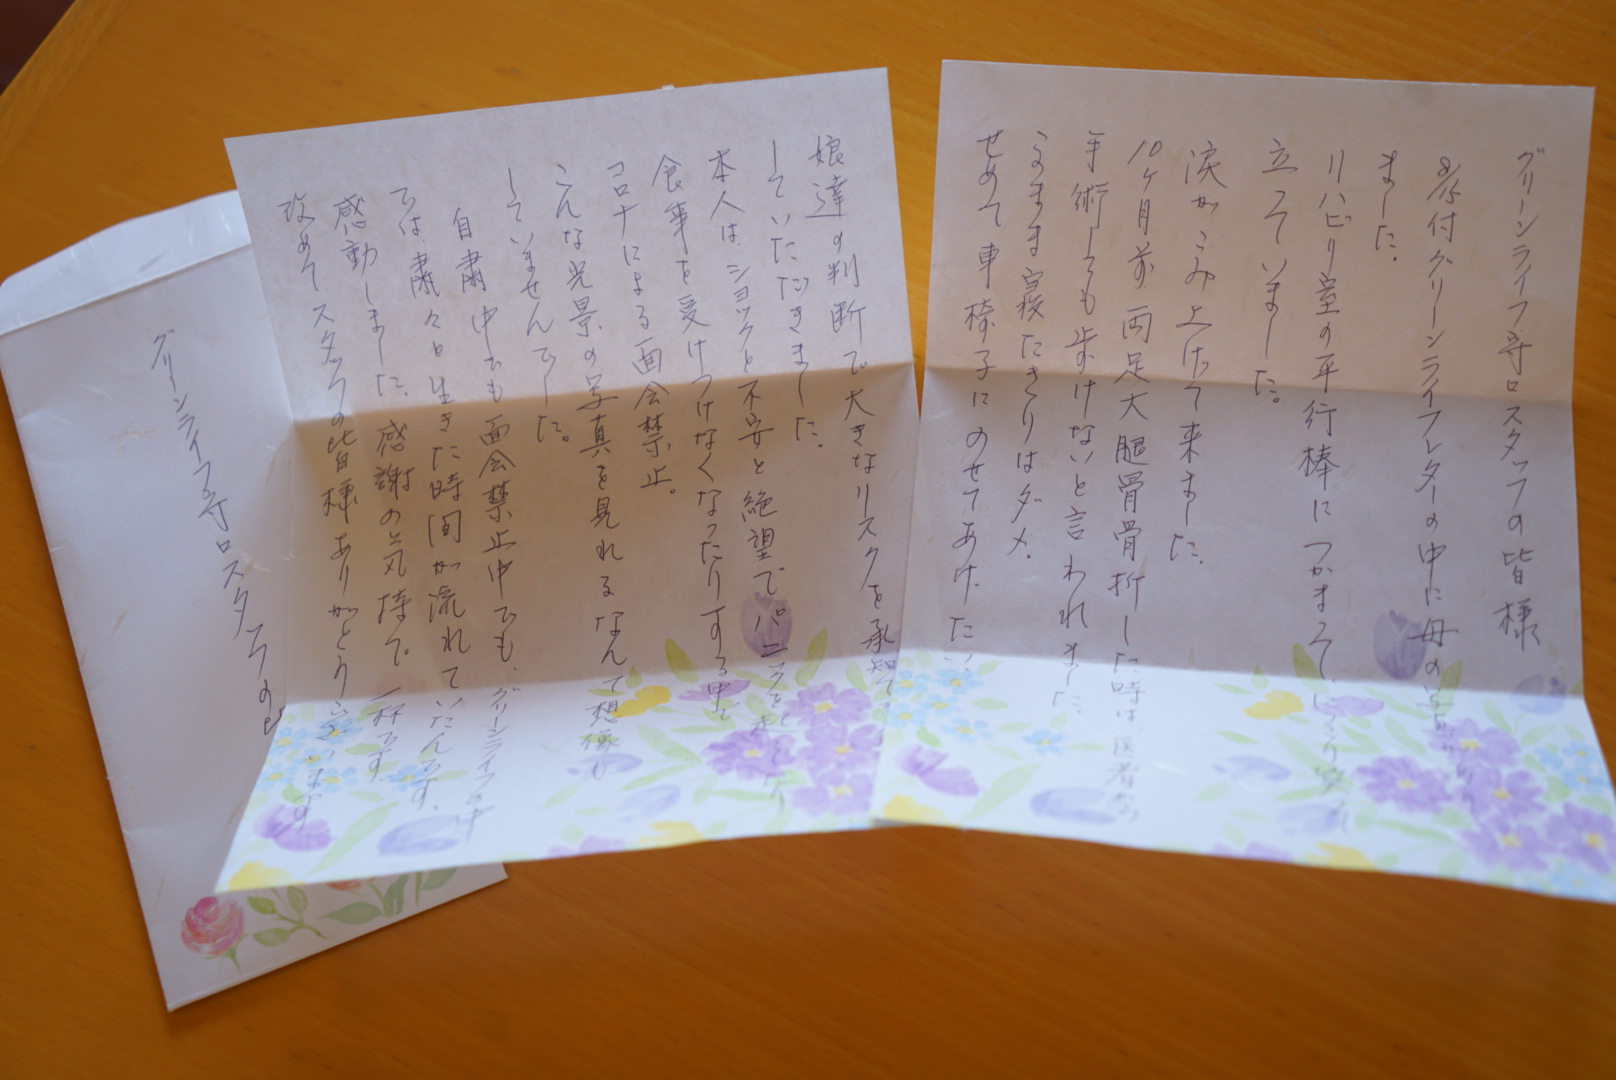 グリーンライフ守口スタッフの皆様
8/5付グリーンライフレターの中に母の写真があり
ました。
リハビリ室の平行棒につかまって、にっこり笑って
立っていました。
涙がこみ上げて来ました。
10ヶ月前両足大腿骨骨折した時は、医者から
手術しても歩けないと言われました
このまま寝たきりはダメ、
せめて車椅子にのせてあげたい
娘達の判断で大きなリスクを承知で
していただきました。
本人は、ショックと不安と絶望でパニックを起こしたり
食事を受けつけなくなったりする中で
コロナによる面会禁止。
こんな光景の写真を見れるなんて想像も
していませんでした。
自粛中でも面会禁止中でも、グリーンライフの中
では、粛々と生きた時間が流れていたんです。
感動しました。感謝の気持で一杯です。
改めてスタッフの皆様ありがとうございます
グリーンライフ守口スタッフの皆